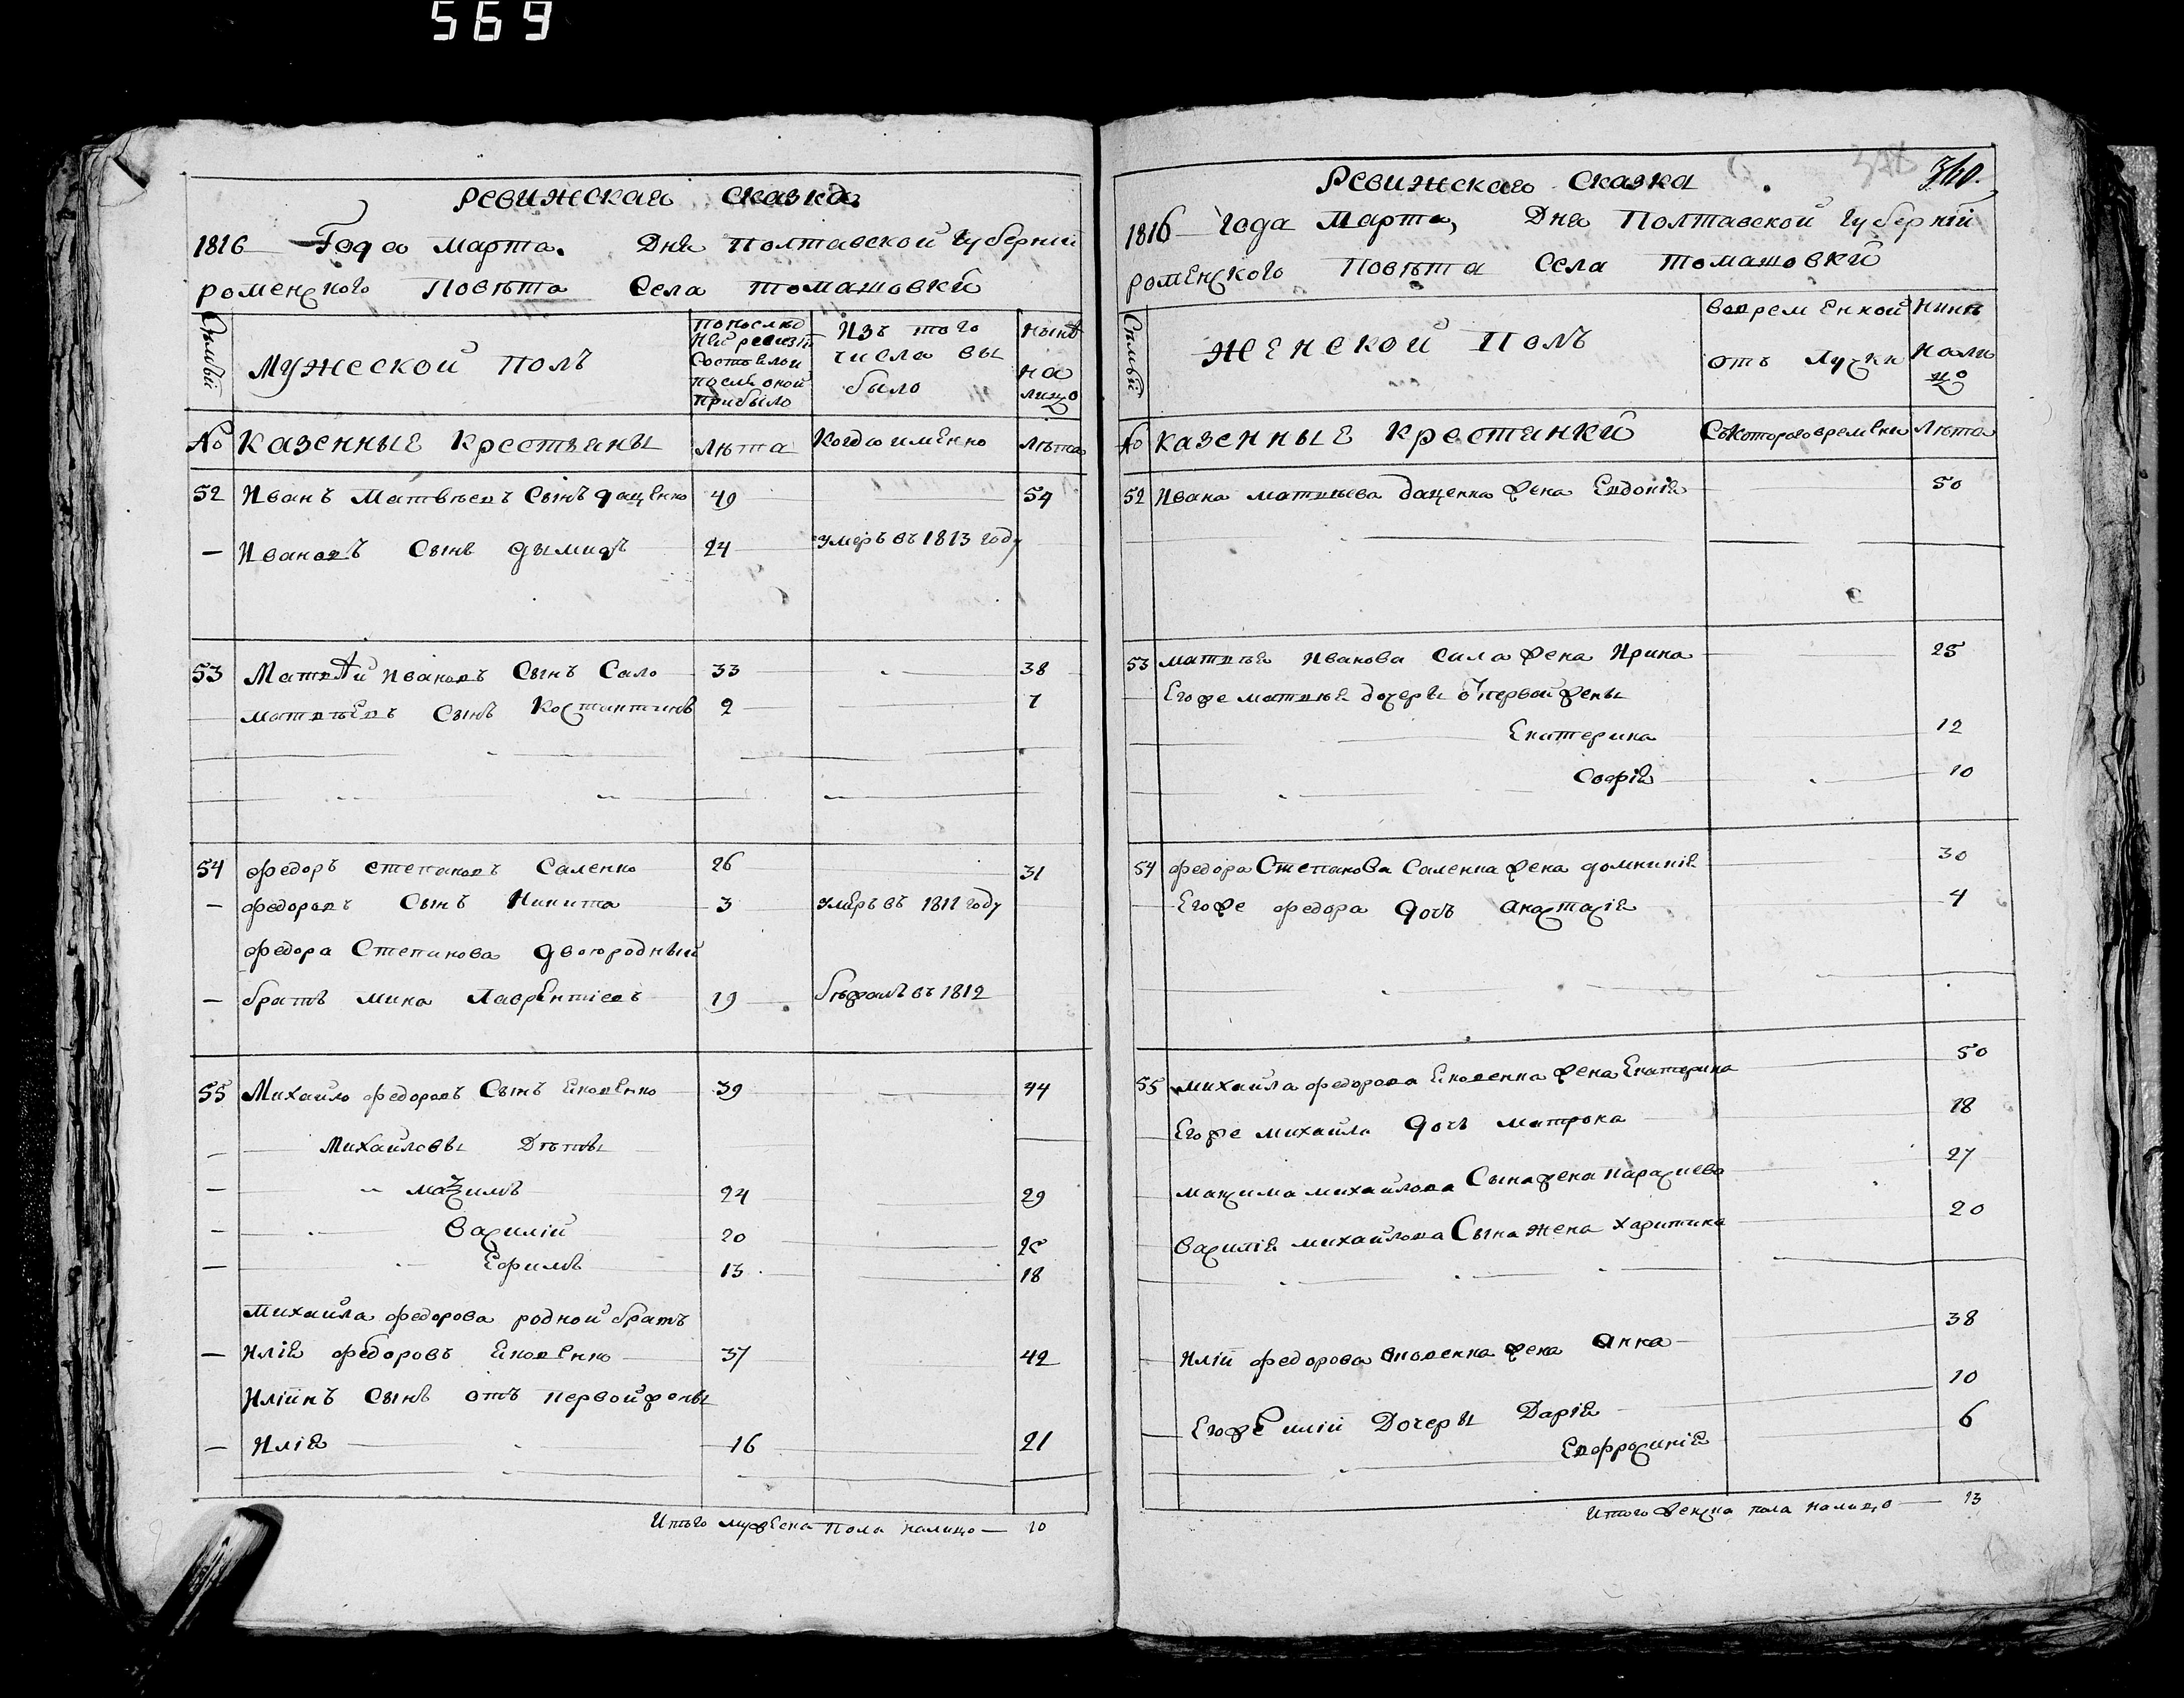 569
Ревижская сказка
1816 Года марта. Дня Полтавской Губерніи
роменского Повѣта Села томашовки
Сѣмьи
Мужеской полъ
По послѣд
ней ревизіи
Состояло и
послѣ оной
прибыло
Изъ того
числа вы
было
Нынѣ
на
лицо
№ Казенные Крестьяны Лѣта Когда именно Лѣта
52 Иванъ Матвѣевъ Сынъ даценко 49 54
— Ивановъ Сынъ дымидъ 24 умеръ въ 1813 году
53 Матвѣй Ивановъ Сынъ Сало 33 38
матвѣевъ Сынъ Костинтинъ 2 7
54 федоръ степановъ Саленко 26 31
— федоровъ Сынъ Никита 3 умеръ въ 1811 году
федора Степанова двоюродный
— братъ мина Лаврентіевъ 19 бѣжалъ въ 1812
55 Михайло федоровъ Сынъ Яковенко 39 44
— Михайловы Дѣти
— маѯимъ 24 29
— Василій 20 25
— Ефимъ 13 18
Михайла федорова родной братъ
— Илія федоровъ Яковенко 37 42
Иліинъ Сынъ отъ первой жены
— Илія 16 21
Итого мужеска пола налицо — 10
360.
Ревижская Сказка
1816 года Марта, Дня Полтавской Губерніи
роменского Повѣта Села томашовки
Сѣмьи
Женской Полъ
Во врем Енной
отъ Лучки
Нинѣ
нали
цо
№ казенные Крестянки Съ которого времени Лѣта
52 Ивана матвѣева даценка жена Евдокія 50
53 матвѣя Иванова Сала жена Ирина 25
Его же матвѣя дочеры от первой жены
Екатерина 12
Софія 10
54 федора Степанова Саленка жена домникія 30
Его же федора дочь анастасія 4
55 михайла федорова Яковенка жена Екатерина 50
Его же михайла дочь матрона 18
максима михайлова Сына жена параскева 27
василія михайлова Сына жена харитина 20
Иліи федорова яковенка жена анна 38
Его же иліи Дочеры Дарія 10
Евфросинія 6
Итого женска пола налицо — 13